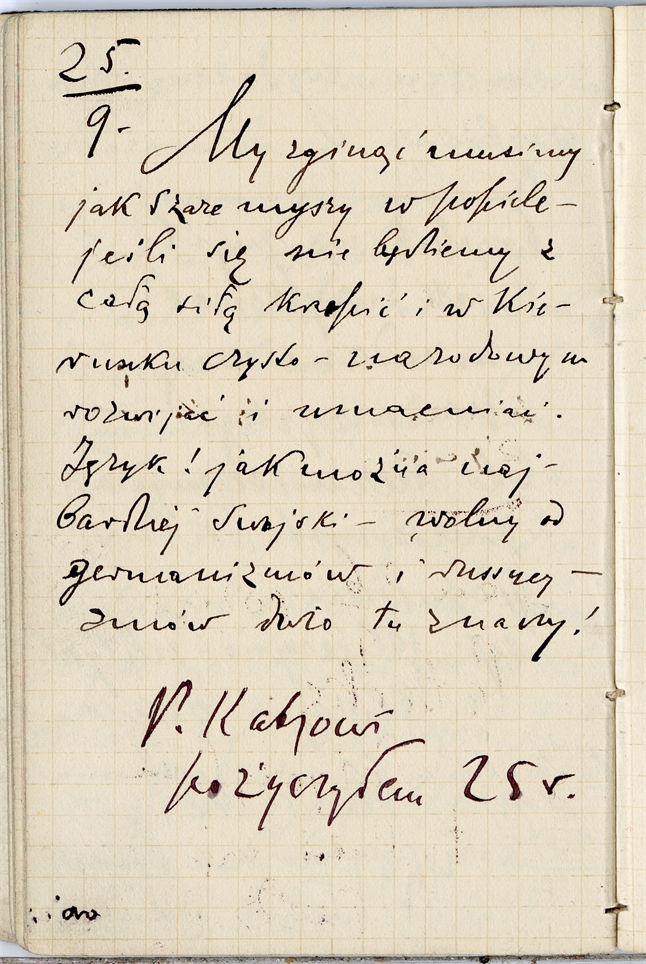 25.
9.
My zginąć musimy
jak szare myszy w popiele –
jeśli się nie będziemy z
całą siłą krzepić i w kie-
runku czysto – narodowym
rozwijać i umacniać.
Język! jak można naj-
bardziej swojski – wolny od
germanizmów i russycy-
zmów dużo tu znaczy!
P. Katzowi
pożyczyłem 25 r.